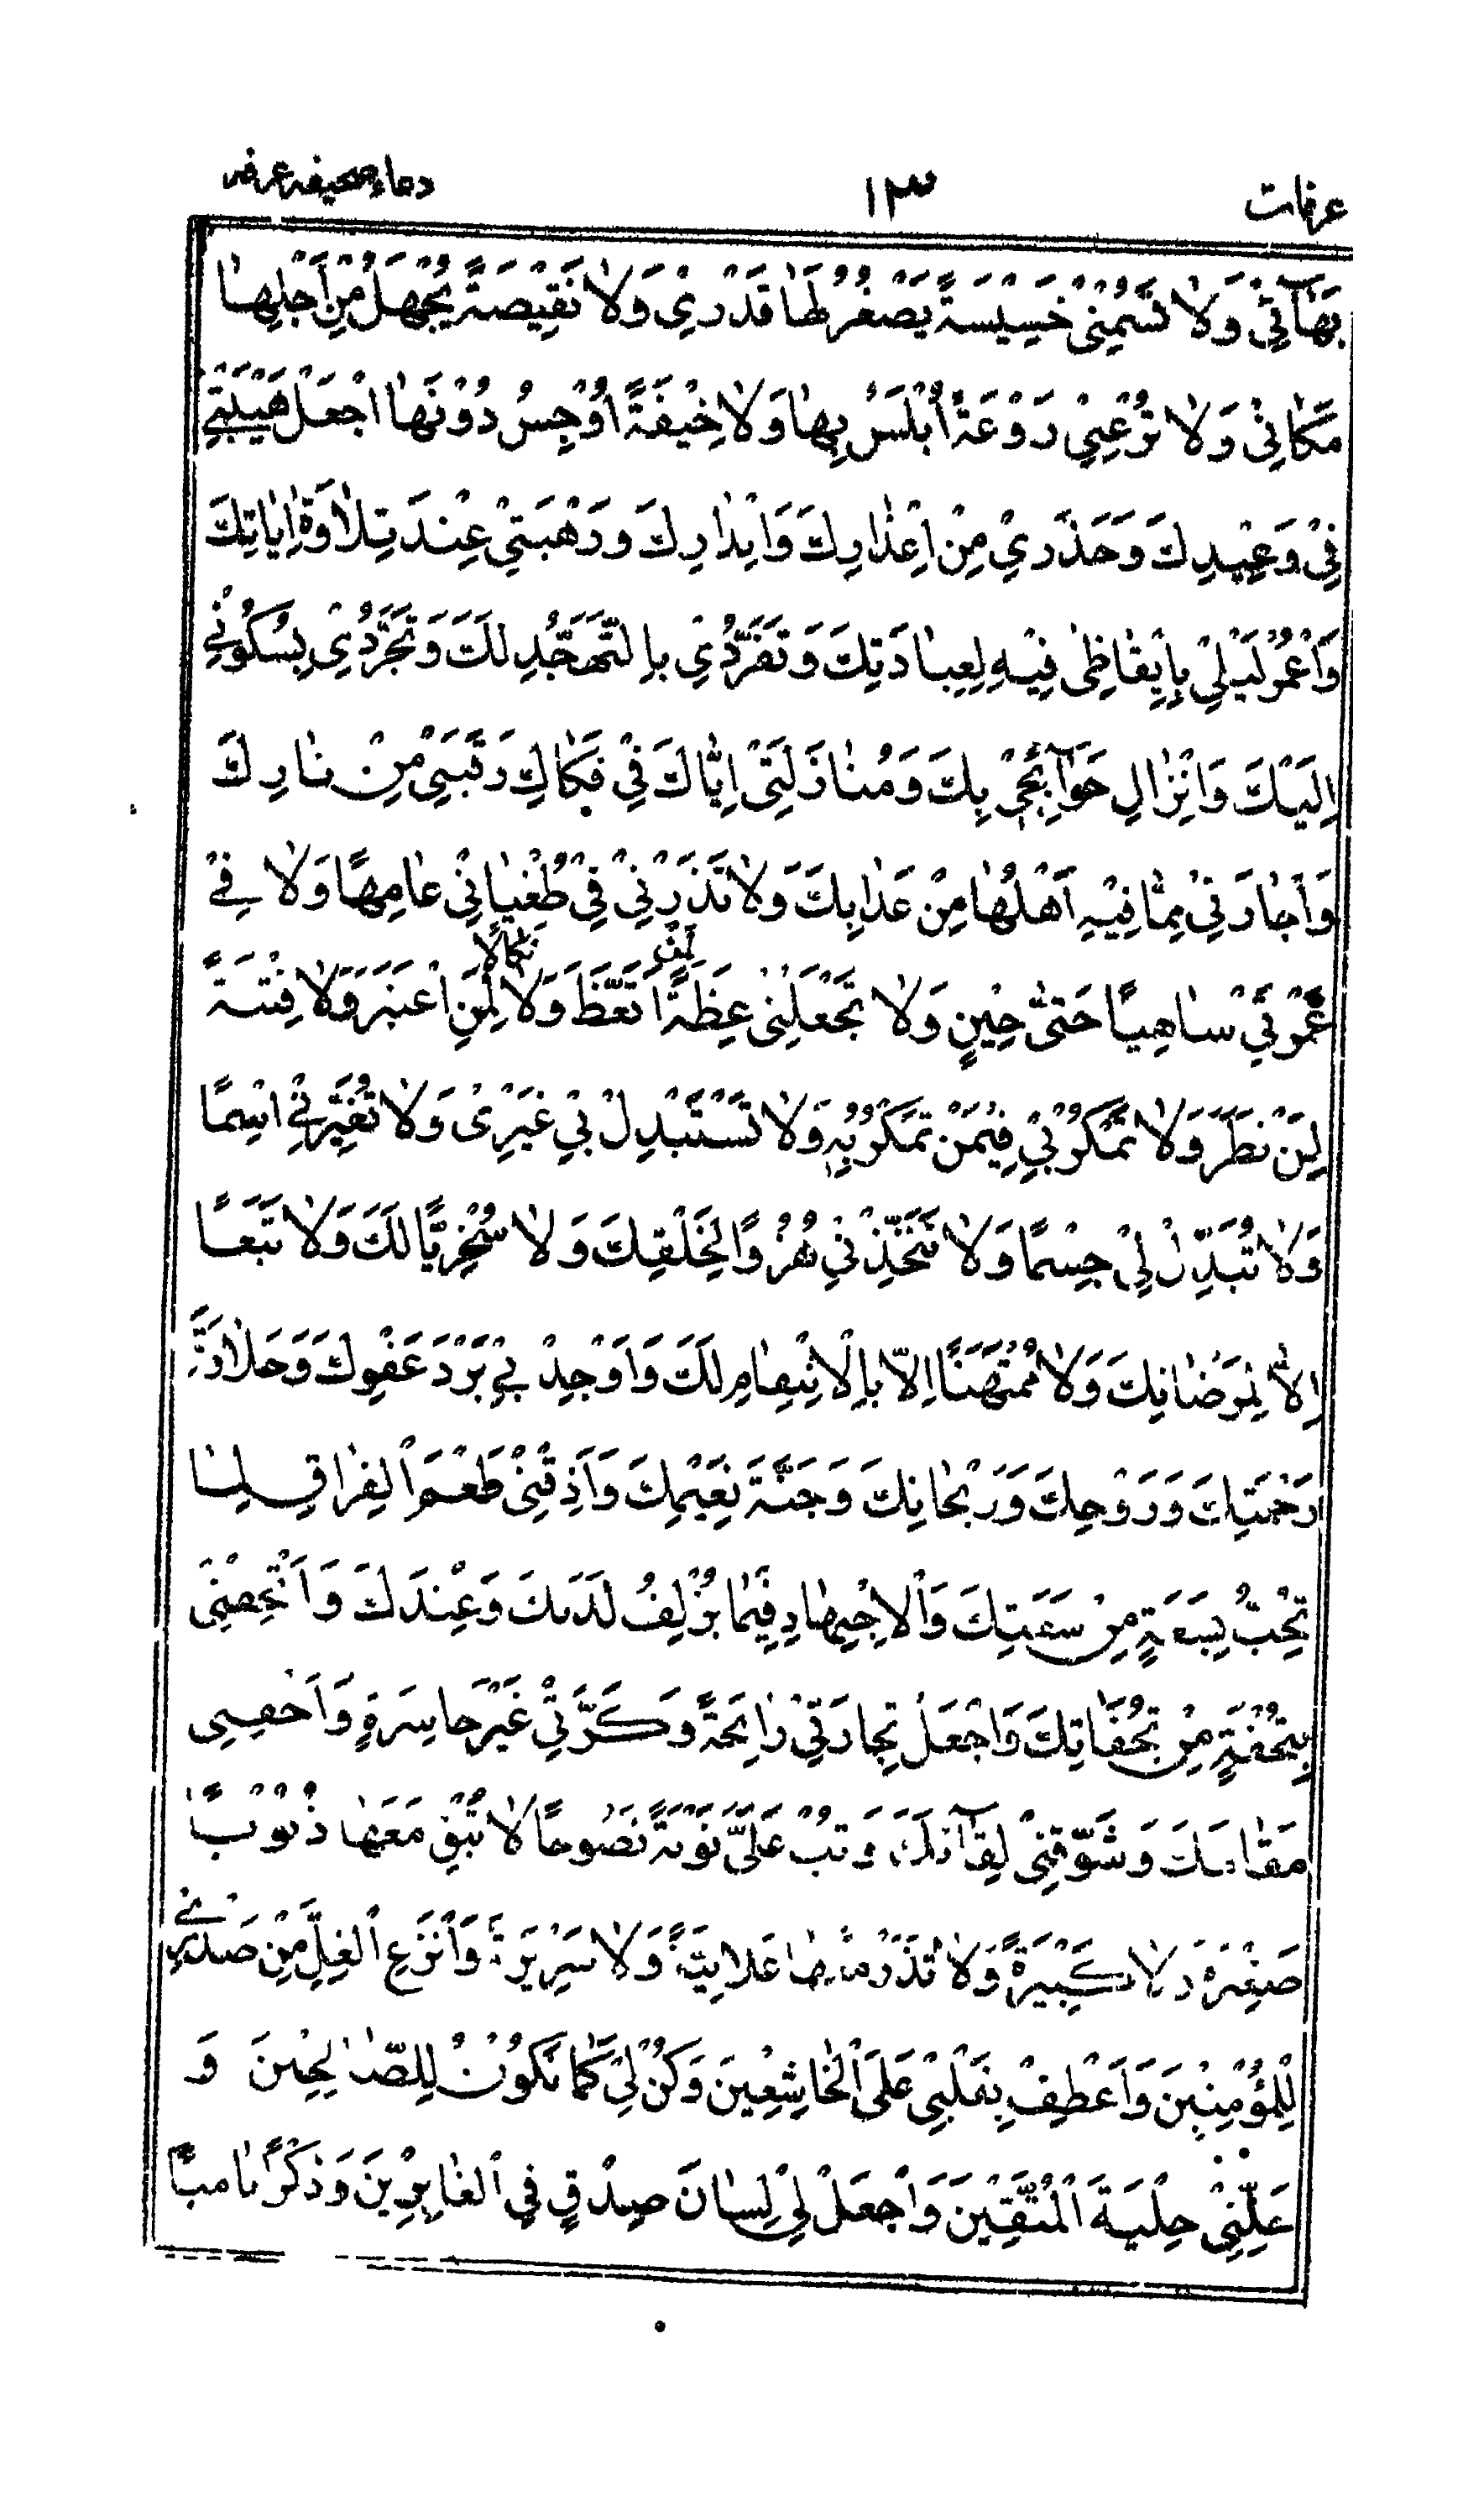 عرفات ۱۳ دعاء صحیفه عرفه
بَهَآئِیْ وَلَا تَسُمْنِیْ خَسِیْسَةً یَصْغُرُ لَهَا قَدْرِیْ وَلَا نَقِیْصَةً یُجْهَلُ مِنْ اَجْلِهَا
مَكَانِیْ وَلَا تَرُعْنِیْ رَوْعَةً اُبْلَسُ بِهَا وَلَا خِیْفَةً اُوْجِسُ دُوْنَهَا اجْعَلْ هَیْبَتِیْ
فِیْ وَعِیْدِكَ وَحَذَرِیْ مِنْ اِعْذَارِكَ وَاِنْذَارِكَ وَرَهْبَتِیْ عِنْدَ تِلَاوَةِ اٰیَاتِكَ
وَاعْمُرْ لَیْلِیْ بِاِیْقَاظِیْ فِیْهِ لِعِبَادَتِكَ وَتَفَرُّدِیْ بِالتَّهَجُّدِ لَكَ وَتَجَرُّدِیْ بِسُكُوْنِیْ
اِلَیْكَ وَاِنْزَالِ حَوَآئِجِیْ بِكَ وَمُنَازَلَتِیْ اِیَّاكَ فِیْ فِكَاكِ رَقَبَتِیْ مِنْ نَارِكَ
وَاِجَارَتِیْ مِمَّا فِیْهِ اَهْلُهَا مِنْ عَذَابِكَ وَلَا تَذَرْنِیْ فِیْ طُغْیَانِیْ عَامِهًا وَلَا فِیْ
غَمْرَتِیْ سَاهِیًا حَتّٰی حِیْنٍ وَلَا تَجْعَلْنِیْ عِظَةً لِمَنِ اتَّعَظَ وَلَا نَكَالًا لِمَنِ اعْتَبَرَ وَلَا فِتْنَةً
لِمَنْ نَظَرَ وَلَا تَمْكُرْ بِیْ فِیْمَنْ تَمْكُرُ بِهٖ وَلَا تَسْتَبْدِلْ بِیْ غَیْرِیْ وَلَا تُغَیِّرْ لِیْ اسْمًا
وَلَا تُبَدِّلْ لِیْ جِسْمًا وَلَا تَتَّخِذْنِیْ هُزُوًا لِخَلْقِكَ وَلَا سُخْرِیًّا لَكَ وَلَا تَبَعًا
اِلَّا لِمَرْضَاتِكَ وَلَا مُمْتَهَنًا اِلَّا بِالْاِنْتِقَامِ لَكَ وَاَوْجِدْنِیْ بَرْدَ عَفْوِكَ وَحَلَاوَةَ
رَحْمَتِكَ وَرَوْحِكَ وَرَیْحَانِكَ وَجَنَّةَ نَعِیْمِكَ وَاَذِقْنِیْ طَعْمَ الْفِرَاقِ لِمَا
تُحِبُّ بِسَعَةٍ مِنْ سَعَتِكَ وَالْاِجْتِهَادِ فِیْمَا یُزْلِفُ لَدَیْكَ وَعِنْدَكَ وَاَتْحِفْنِیْ
بِتُحْفَةٍ مِنْ تُحُفَاتِكَ وَاجْعَلْ تِجَارَتِیْ رَابِحَةً وَكَرَّتِیْ غَیْرَ خَاسِرَةٍ وَاَخِفْنِیْ
مَقَامَكَ وَشَوِّقْنِیْ لِقَآئَكَ وَتُبْ عَلَیَّ تَوْبَةً نَصُوْحًا لَا تُبْقِ مَعَهَا ذُنُوْبًا
صَغِیْرَةً وَلَا كَبِیْرَةً وَلَا تَذَرْ مَعَهَا عَلَانِیَةً وَلَا سَرِیْرَةً وَانْزَعِ الْغِلَّ مِنْ صَدْرِیْ
لِلْمُؤْمِنِیْنَ وَاعْطِفْ بِقَلْبِیْ عَلَی الْخَاشِعِیْنَ وَكُنْ لِیْ كَمَا تَكُوْنُ لِلصَّالِحِیْنَ وَ
حَلِّنِیْ حِلْیَةَ الْمُتَّقِیْنَ وَاجْعَلْ لِیْ لِسَانَ صِدْقٍ فِی الْغَابِرِیْنَ وَذِكْرًا نَامِیًا